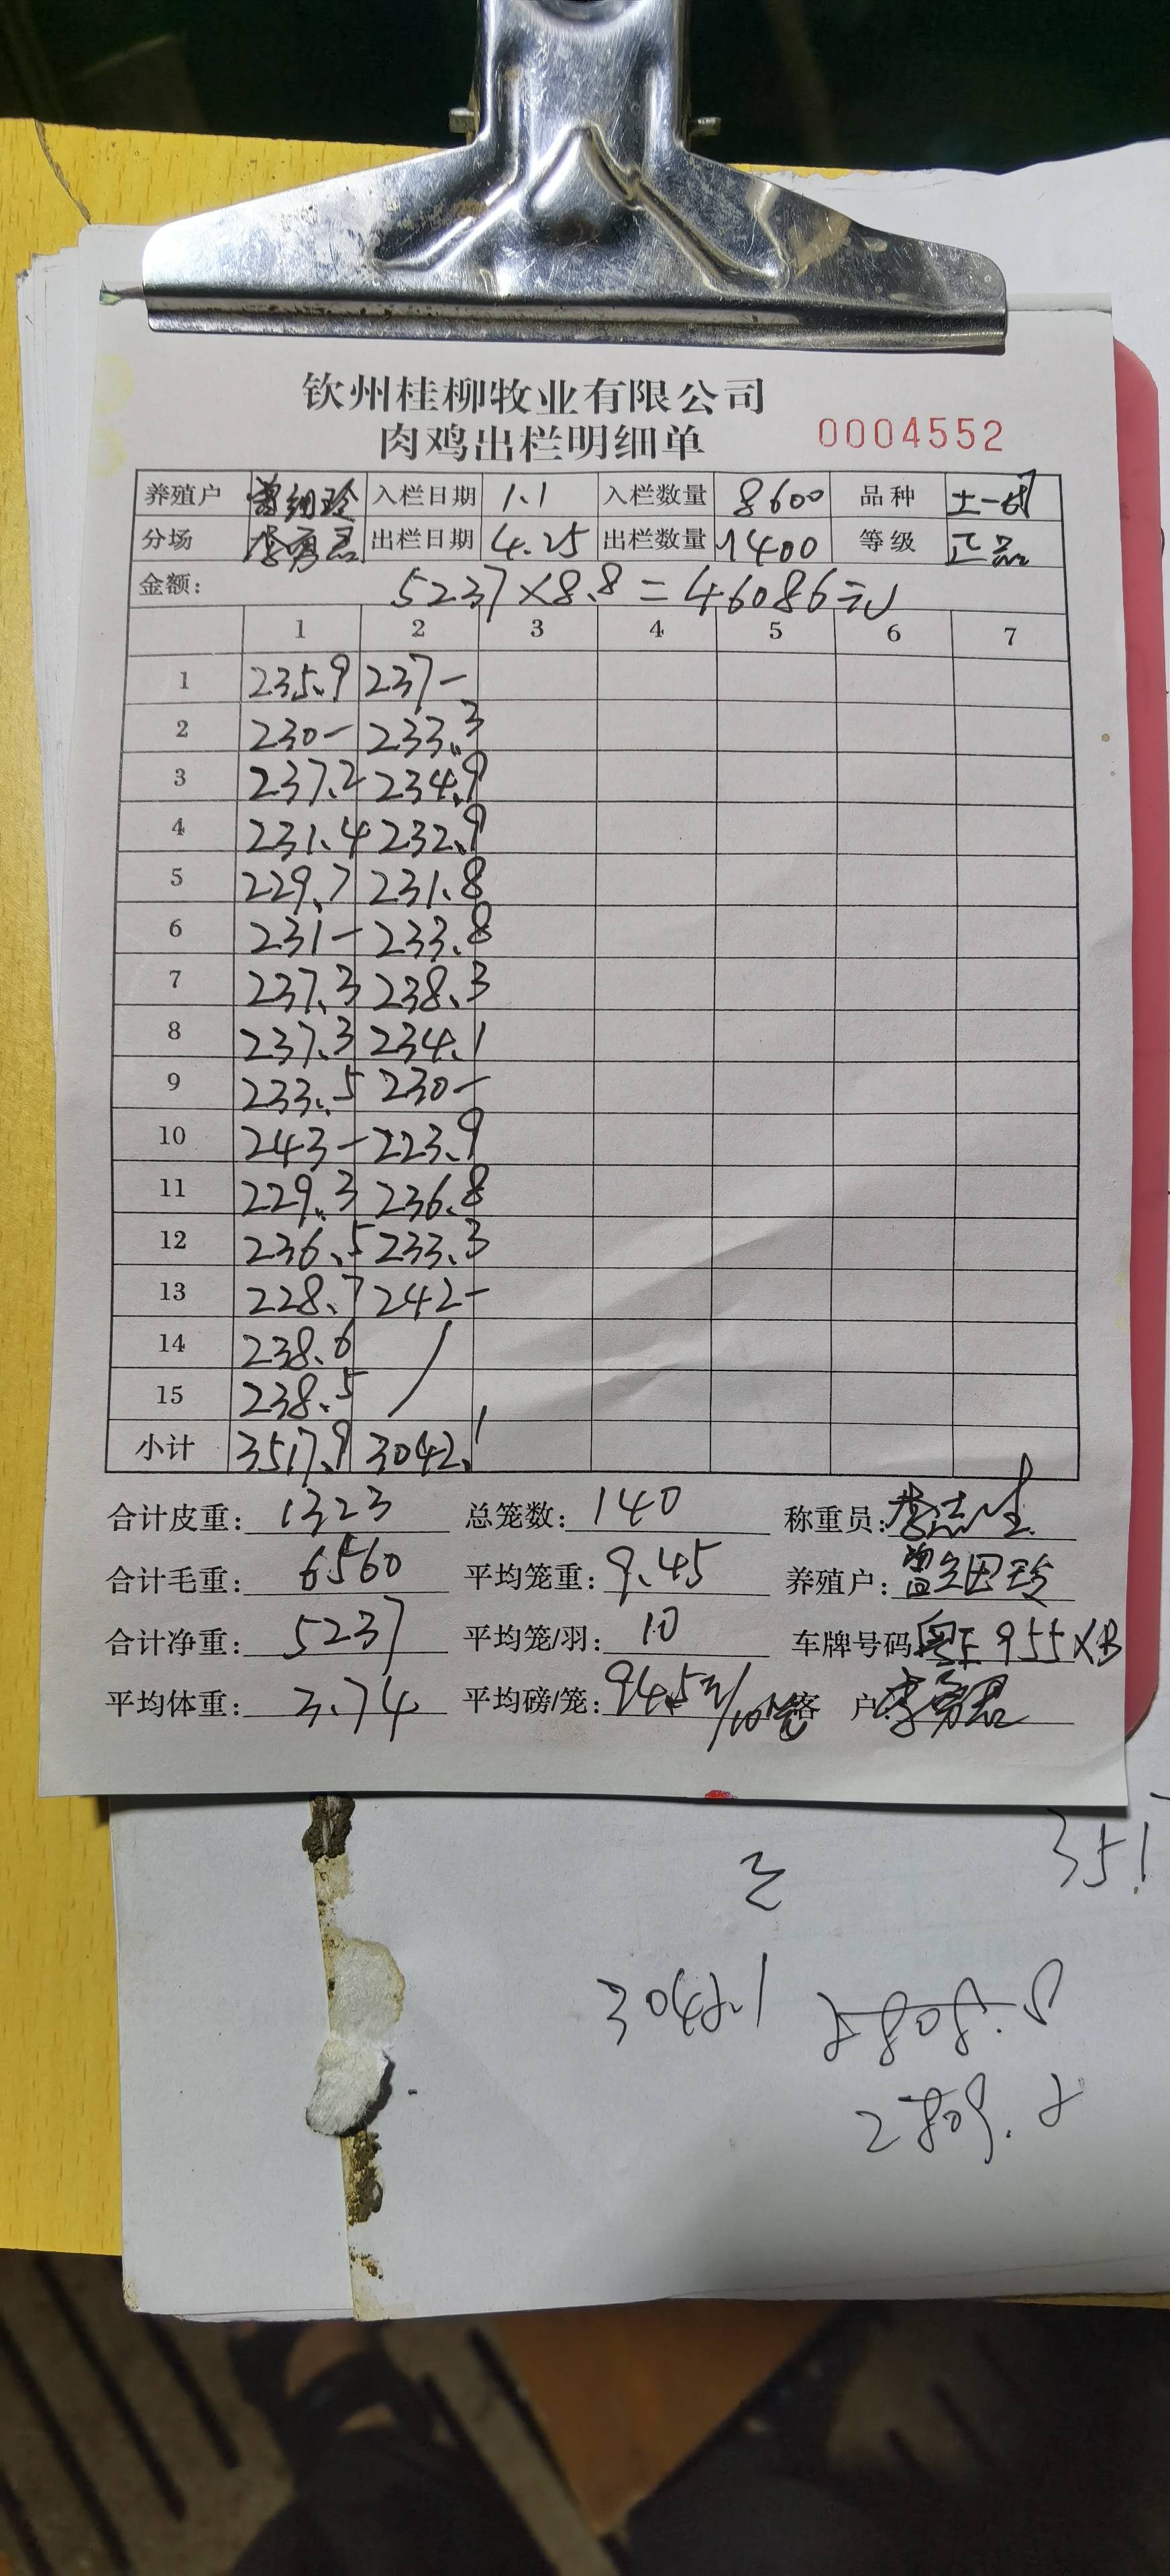 钦州桂柳牧业有限公司
肉鸡出栏明细单 0004552
养殖户 曾细玲 入栏日期 1.1 入栏数量 8600 品种 土一
分场 李勇君 出栏日期 4.25 出栏数量 1400 等级 正品
金额: 5237×8.8=46086元
1 2 3 4 5 6 7
1 235.9 237-
2 230- 233.3
3 237.2 234.9
4 231.4 232.9
5 229.7 231.8
6 231- 233.8
7 237.3 238.3
8 237.3 234.1
9 233.5 230-
10 243- 223.9
11 229.3 236.8
12 236.5 233.3
13 228.7 242-
14 238.6 /
15 238.5
小计 3517.9 3042.1
合计皮重: 1323 总笼数: 140 称重员: 李志生
合计毛重: 6560 平均笼重: 9.45 养殖户: 曾细玲
合计净重: 5237 平均笼/羽: 10 车牌号码 955XB
平均体重: 3.74 平均磅/笼: 94.5 /10笼 客户 李勇君
351
3042.1 2808.8
2809.2